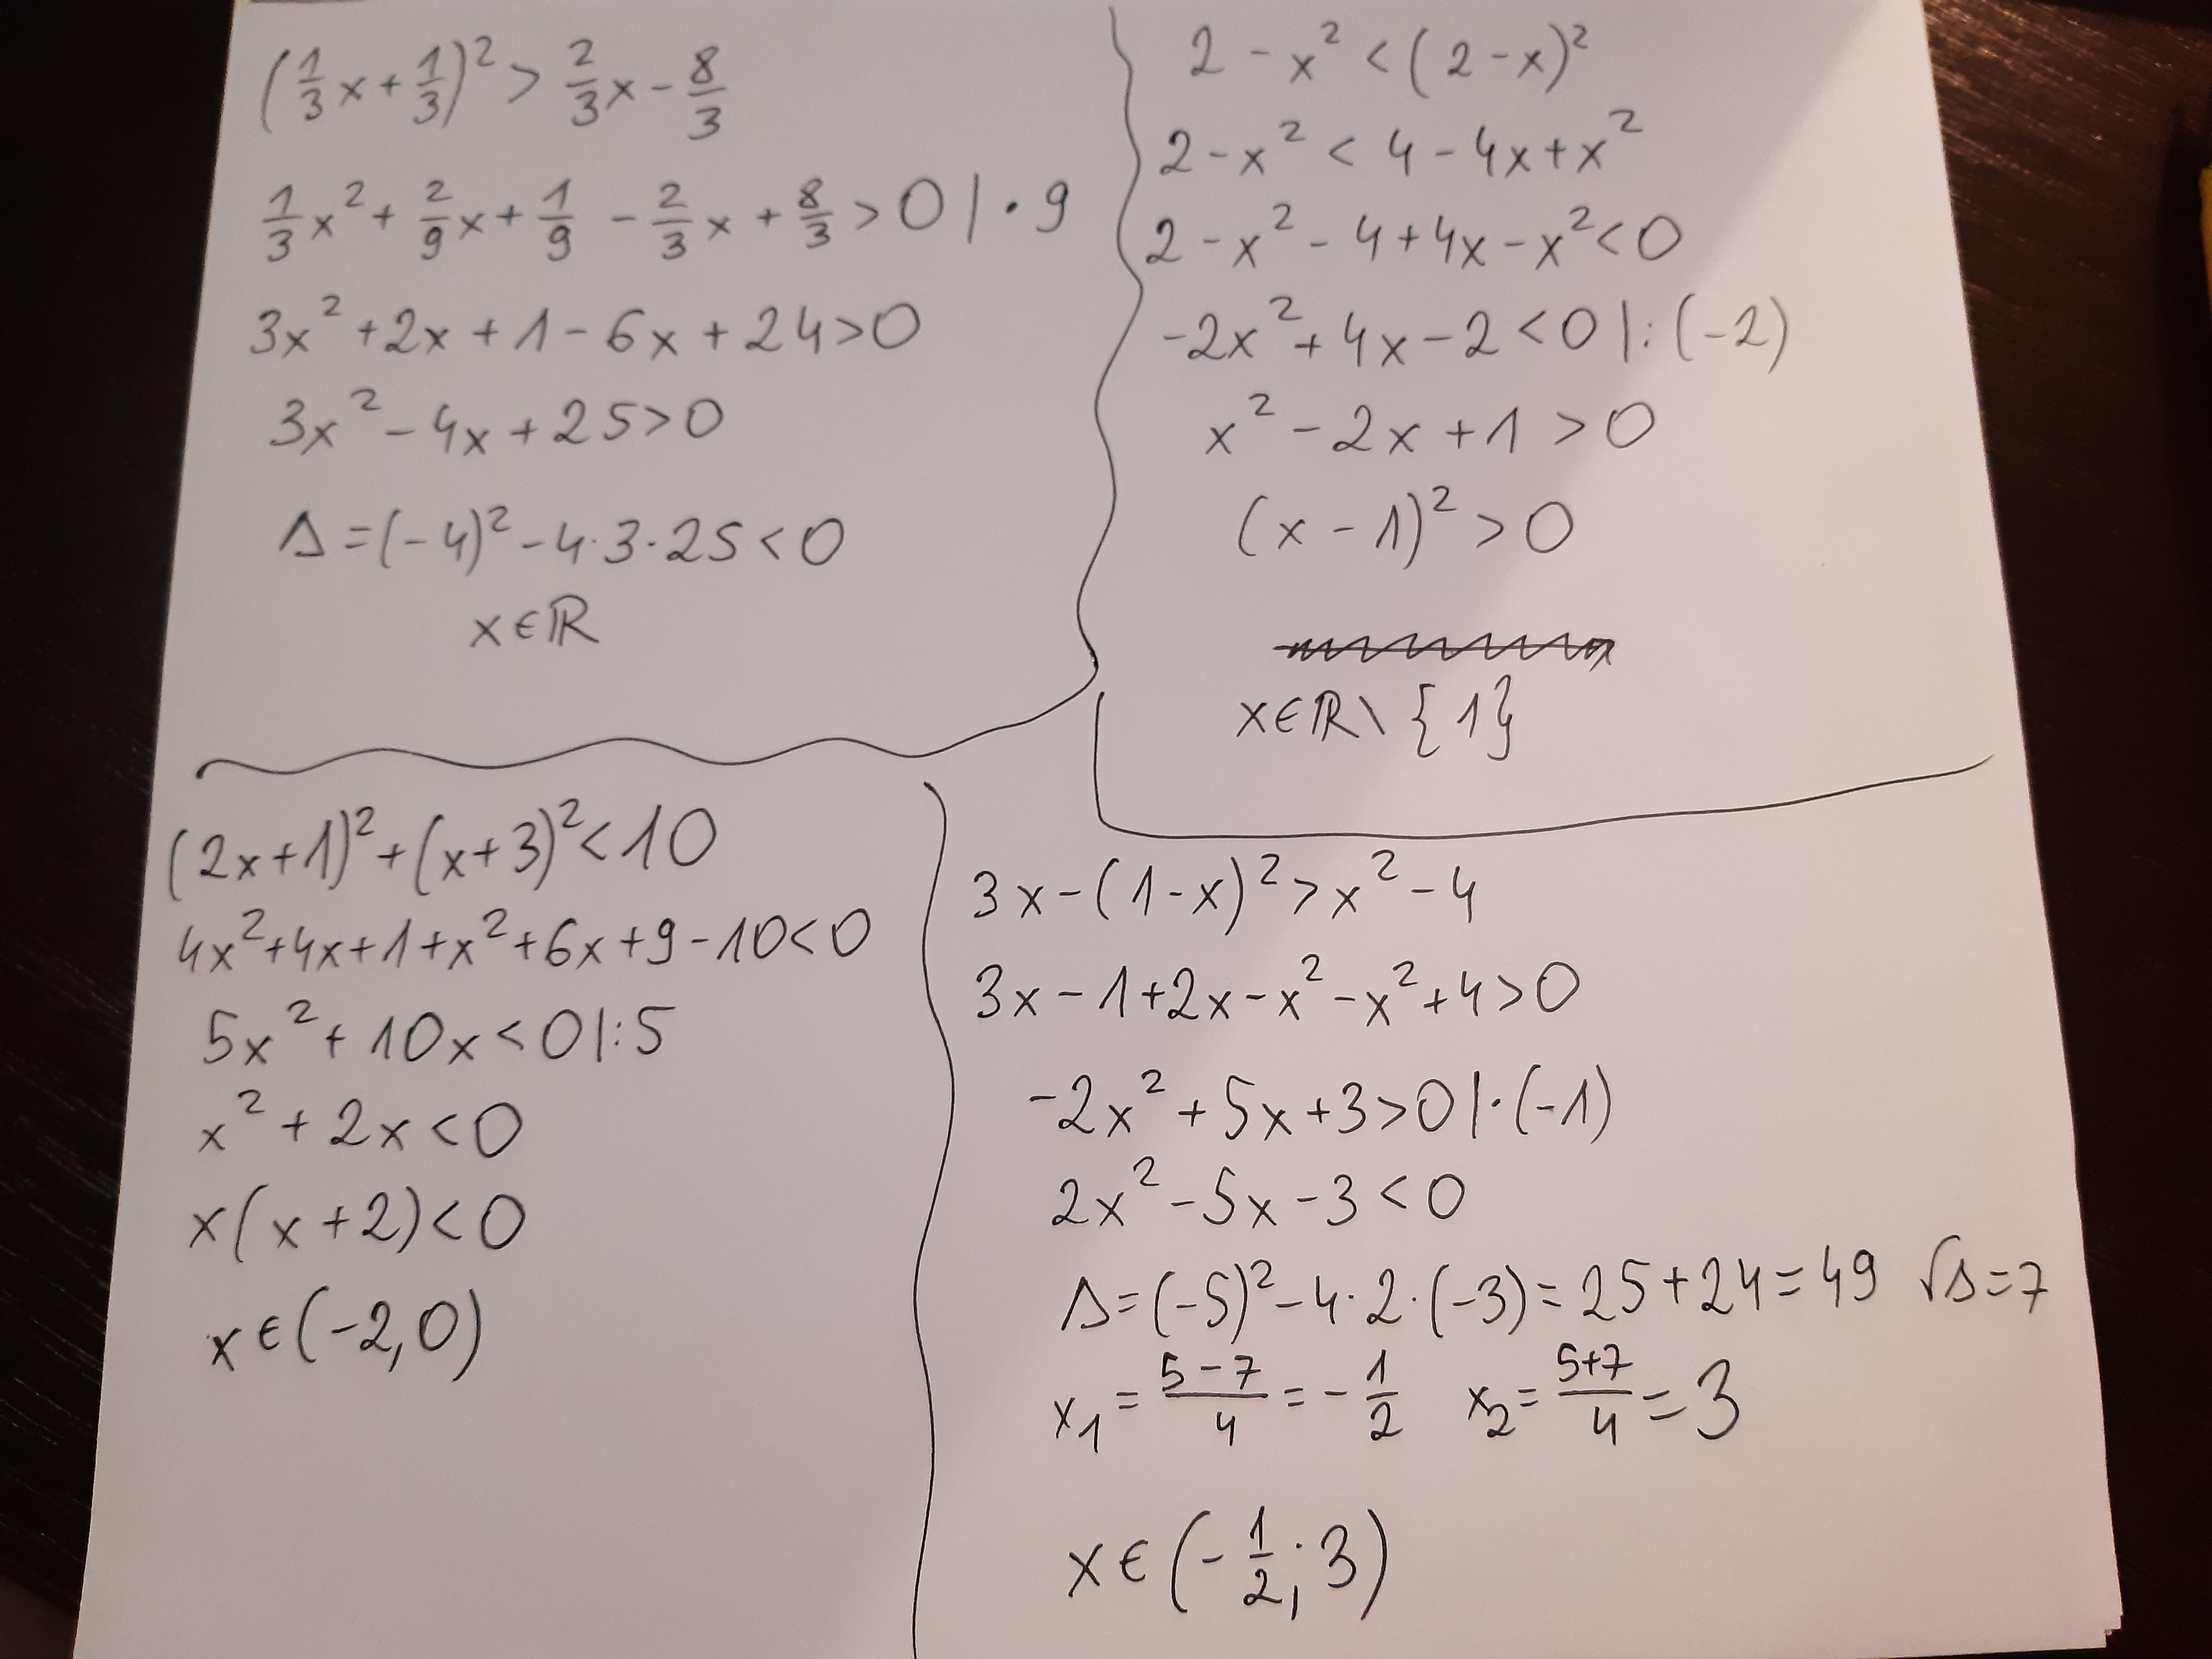 (1/3 x + 1/3)² > 2/3 x - 8/3
1/3 x² + 2/9 x + 1/9 - 2/3 x + 8/3 > 0 | · 9
3x² + 2x + 1 - 6x + 24 > 0
3x² - 4x + 25 > 0
Δ = (-4)² - 4·3·25 < 0
x ∈ ℝ
2 - x² < (2 - x)²
2 - x² < 4 - 4x + x²
2 - x² - 4 + 4x - x² < 0
-2x² + 4x - 2 < 0 | : (-2)
x² - 2x + 1 > 0
(x - 1)² > 0
x ∈ ℝ \ {1}
(2x + 1)² + (x + 3)² < 10
4x² + 4x + 1 + x² + 6x + 9 - 10 < 0
5x² + 10x < 0 | : 5
x² + 2x < 0
x(x + 2) < 0
x ∈ (-2, 0)
3x - (1 - x)² > x² - 4
3x - 1 + 2x - x² - x² + 4 > 0
-2x² + 5x + 3 > 0 | · (-1)
2x² - 5x - 3 < 0
Δ = (-5)² - 4·2·(-3) = 25 + 24 = 49 √Δ = 7
x₁ = (5 - 7)/4 = - 1/2 x₂ = (5 + 7)/4 = 3
x ∈ (- 1/2 ; 3)